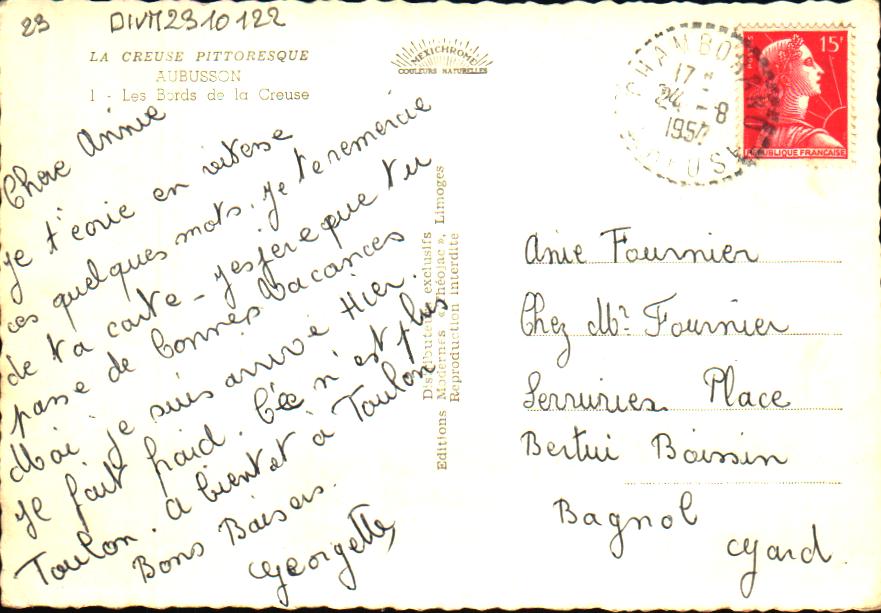 23 DIVM2310122
LA CREUSE PITTORESQUE
AUBUSSON
1 - Les Bords de la Creuse
MEXICHROME
COULEURS NATURELLES
CHAMBORAND
17
24 - 8
1957
CREUSE
15F
POSTES
REPUBLIQUE FRANÇAISE
Chere Annie
Je t'ecrie en vitesse
ces quelques mots. Je te remercie
de ta carte - J'esjere que tu
passe de bonnes vacances
Moi je suis arrivé Hier.
Il fait froid. Cée n'est plus
Toulon. A bientot à Toulon
Bons Baisers.
Georgette
Distributeurs exclusifs
Editions Modernes « Théojac », Limoges
Reproduction interdite
Anie Fournier
Chez Mr Fournier
Serruries Place
Bertui Boissin
Bagnol
Gard